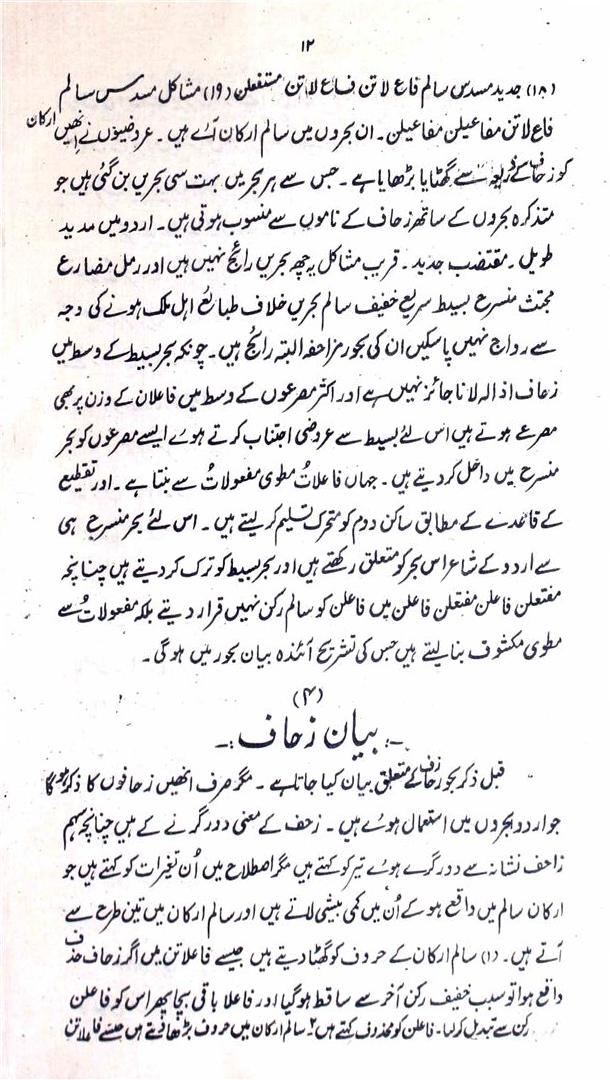 ۱۲
(۱۸) جدید مسدس سالم فاع لاتن فاع لاتن مستفعلن (۱۹) مشاکل مسدس سالم
فاع لاتن مفاعیلن مفاعیلن ۔ ان بحروں میں سالم ارکان آے ہیں ۔ عروضیوں نے انھیں ارکان
کو زحاف کے ذریعہ سے گھٹایا بڑھایا ہے ۔ جس سے ہر بحر میں بہت سی بحریں بن گئی ہیں جو
متذکرہ بحروں کے ساتھ زحاف کے ناموں سے منسوب ہوتی ہیں ۔ اردو میں مدید
طویل ۔ مقتضب جدید ۔ قریب مشاکل یہ چھ بحریں رائج نہیں ہیں اور رمل مضارع
مجتث منسرح بسیط سریع خفیف سالم بحریں خلاف طبائع اہل ملک ہونے کی وجہ
سے رواج نہیں پا سکیں ان کی بحور مزاحفہ البتہ رائج ہیں ۔ چونکہ بحر بسیط کے وسط میں
زحاف اذالہ لانا جائز نہیں ہے اور اکثر مصرعوں کے وسط میں فاعلان کے وزن پر بھی
مصرعے ہوتے ہیں اس لئے بسیط سے عروضی اجتناب کرتے ہوے ایسے مصرعوں کو بحر
منسرح میں داخل کر دیتے ہیں ۔ جہاں فاعلاتُ مطوی مفعولاتُ سے بنتا ہے ۔ اور تقطیع
کے قاعدے کے مطابق ساکن دوم کو متحرک تسلیم کر لیتے ہیں ۔ اس لئے بحر منسرح ہی
سے اردو کے شاعر اس بحر کو متعلق رکھتے ہیں اور بحر بسیط کو ترک کر دیتے ہیں چنانچہ
مفتعلن فاعلن مفتعلن فاعلن میں فاعلن کو سالم رکن نہیں قرار دیتے بلکہ مفعولاتُ سے
مطوی مکشوف بنا لیتے ہیں جس کی تشریح آئندہ بیان بحور میں ہو گی ۔
(۴)
بیان زحاف
قبل ذکر بحور زحاف کے متعلق بیان کیا جاتا ہے ۔ مگر صرف انھیں زحافوں کا ذکر ہو گا
جو اردو بحروں میں استعمال ہوے ہیں ۔ زحف کے معنی دور گرنے کے ہیں چنانچہ سہم
زاحف نشانہ سے دور گرے ہوے تیر کو کہتے ہیں مگر اصطلاح میں اُن تغیرات کو کہتے ہیں جو
ارکان سالم میں واقع ہو کے اُن میں کمی بیشی لاتے ہیں اور سالم ارکان میں تین طرح سے
آتے ہیں ۔ (۱) سالم ارکان کے حروف کو گھٹا دیتے ہیں جیسے فاعلاتن میں اگر زحاف حذف
واقع ہوا تو سبب خفیف رکن آخر سے ساقط ہو گیا اور فاعلا باقی بچا پھر اس کو فاعلن
رکن سے تبدیل کر لیا ۔ فاعلن کو محذوف کہتے ہیں ۲۔ سالم ارکان میں حروف بڑھا دیتے ہیں جیسے فاعلاتن